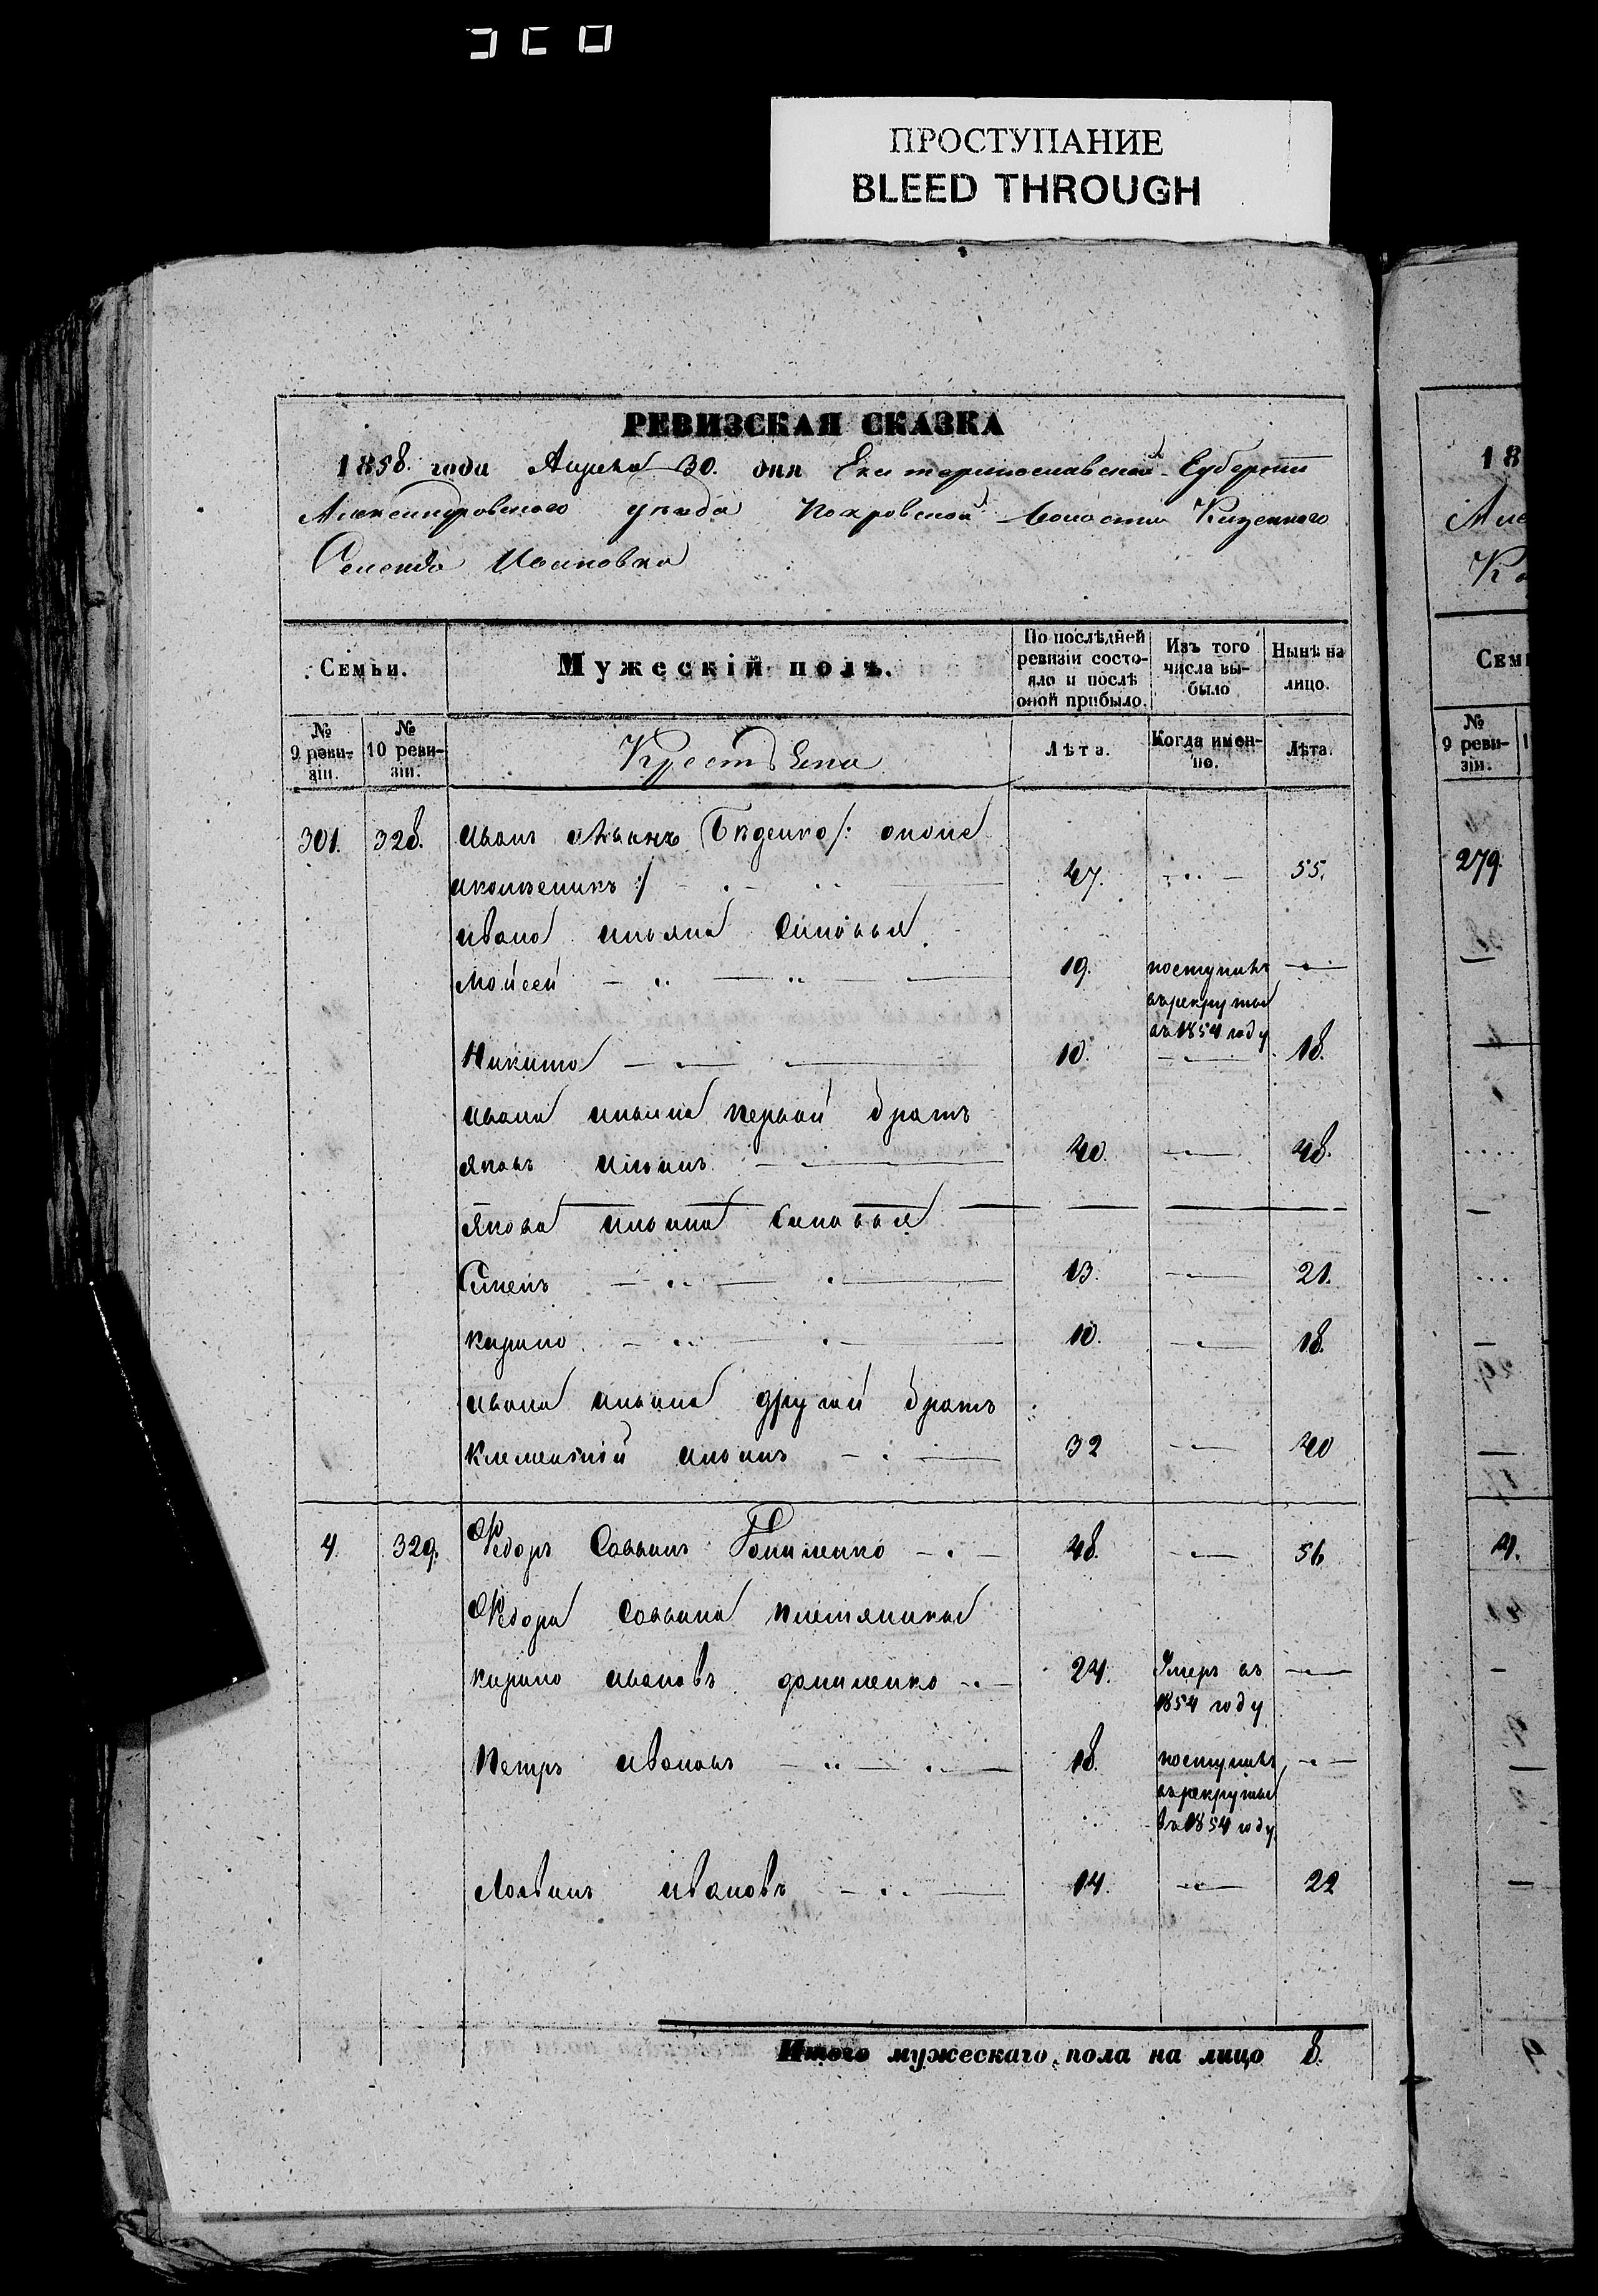 ПРОСТУПАНИЕ
BLEED THROUGH
РЕВИЗСКАЯ СКАЗКА
1858. года Апреля 30. дня Екатеринославской Губернии
Александровского уезда Покровской волости Казенного
Селения Ивановки
Семьи.
Мужескій полъ.
По послѣдней ревизіи состояло и послѣ оной прибыло.
Изъ того числа выбыло
Нынѣ на лицо.
№ 9 ревизіи.
№ 10 ревизіи.
Крестьяне
Лѣта.
Когда именно.
Лѣта.
301. 328. Иванъ Ильинъ
47. 55.
Ивана Ильина Синовья
Мойсей 19. поступилъ
въ рекруты
въ 1854 году
Никита 10. 18.
Ивана Ильина первой братъ
Яковъ Ильинъ 40. 48.
Якова Ильина Синовья
13. 21.
Кирило 10. 18.
Ивана Ильина другой братъ
Ильинъ 32 40
4. 329. Федоръ Саввинъ 48. 56
Федора Саввина племяники
Кирило Ивановъ даниленко 24. Умеръ въ
1854 году
Петръ Ивановъ 18. поступилъ
въ рекруты
въ 1854 году
Ивановъ 14. 22
Итого мужескаго пола на лицо 8.
18
Але
Семь
№
9 ревизіи.
279.
4.